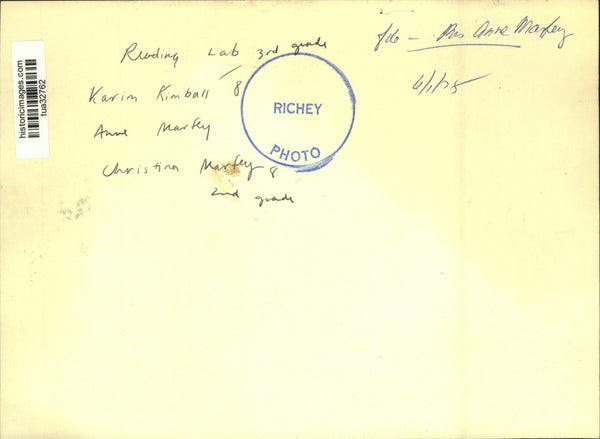 historicimages.com
tua32762
Reading Lab 3rd grade
Karim Kimball 8
Anne Marfey
Christina Marfey 8
2nd grade
RICHEY
PHOTO
Anne Marfey
6/1/75